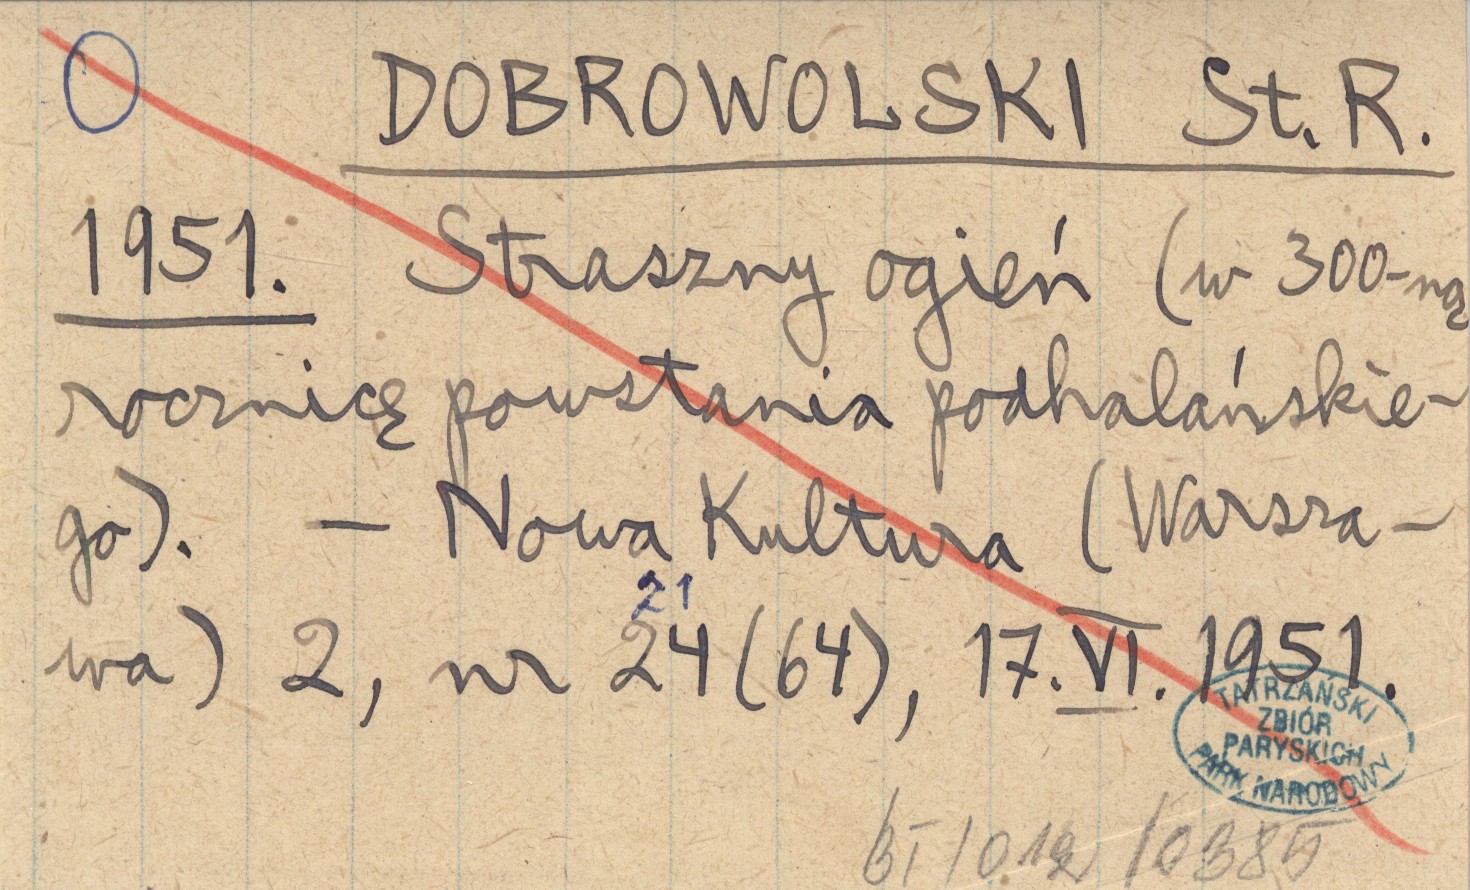 DOBROWOLSKI St. R.
1951. Straszny ogień (w 300-ną
rocznicę powstania podhalańskie-
go). — Nowa Kultura (Warsza-
21
wa) 2, nr 24(64), 17.VI.1951.
TATRZAŃSKI
ZBIÓR
PARYSKICH
PARK NARODOWY